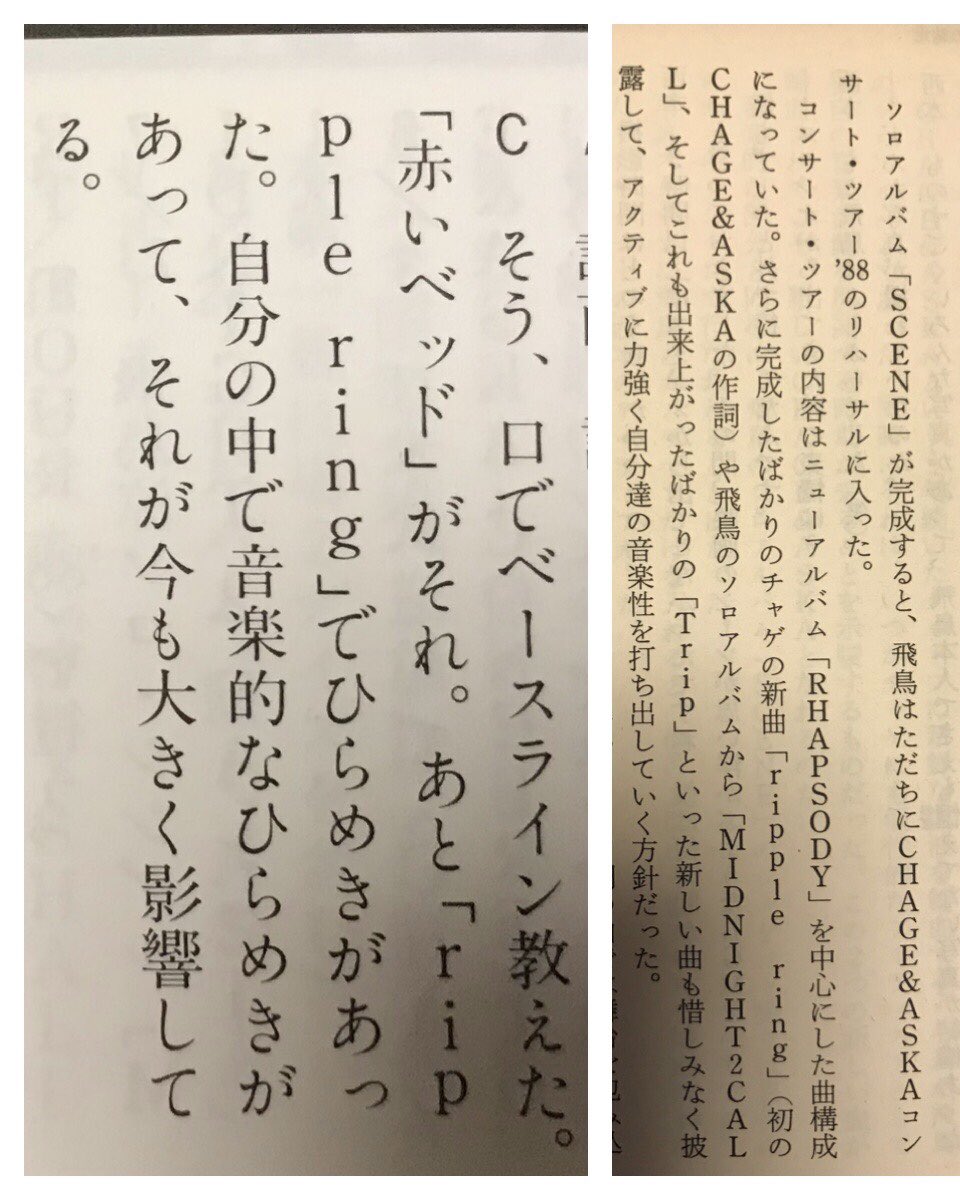 C　そう、口でベースライン教えた。
「赤いベッド」がそれ。あと「rip
ple ring」でひらめきがあっ
た。自分の中で音楽的なひらめきが
あって、それが今も大きく影響して
る。
ソロアルバム「SCENE」が完成すると、飛鳥はただちにCHAGE&ASKAコン
サート・ツアー'88のリハーサルに入った。
コンサート・ツアーの内容はニューアルバム「RHAPSODY」を中心にした曲構成
になっていた。さらに完成したばかりのチャゲの新曲「ripple ring」(初の
CHAGE&ASKAの作詞)や飛鳥のソロアルバムから「MIDNIGHT2CAL
L」、そしてこれも出来上がったばかりの「Trip」といった新しい曲も惜しみなく披
露して、アクティブに力強く自分達の音楽性を打ち出していく方針だった。